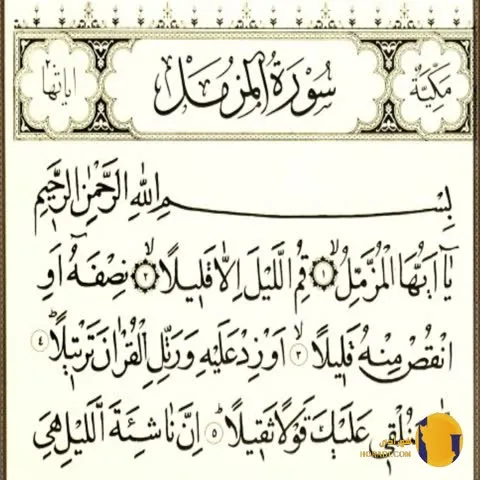 مَكِّيَّةٌ سُورَةُ الْمُزَّمِّلْ اٰيَاتُهَا ٢٠
بِسْمِ اللّٰهِ الرَّحْمٰنِ الرَّحٖيمِ
يَٓا اَيُّهَا الْمُزَّمِّلُۙ ﴿١﴾ قُمِ الَّيْلَ اِلَّا قَلٖيلًاۙ ﴿٢﴾ نِصْفَهُٓ اَوِ
انْقُصْ مِنْهُ قَلٖيلًاۙ ﴿٣﴾ اَوْ زِدْ عَلَيْهِ وَرَتِّلِ الْقُرْاٰنَ تَرْتٖيلًاؕ ﴿٤﴾
عَلَيْكَ قَوْلًا ثَقٖيلًا ﴿٥﴾ اِنَّ نَاشِئَةَ الَّيْلِ هِيَ